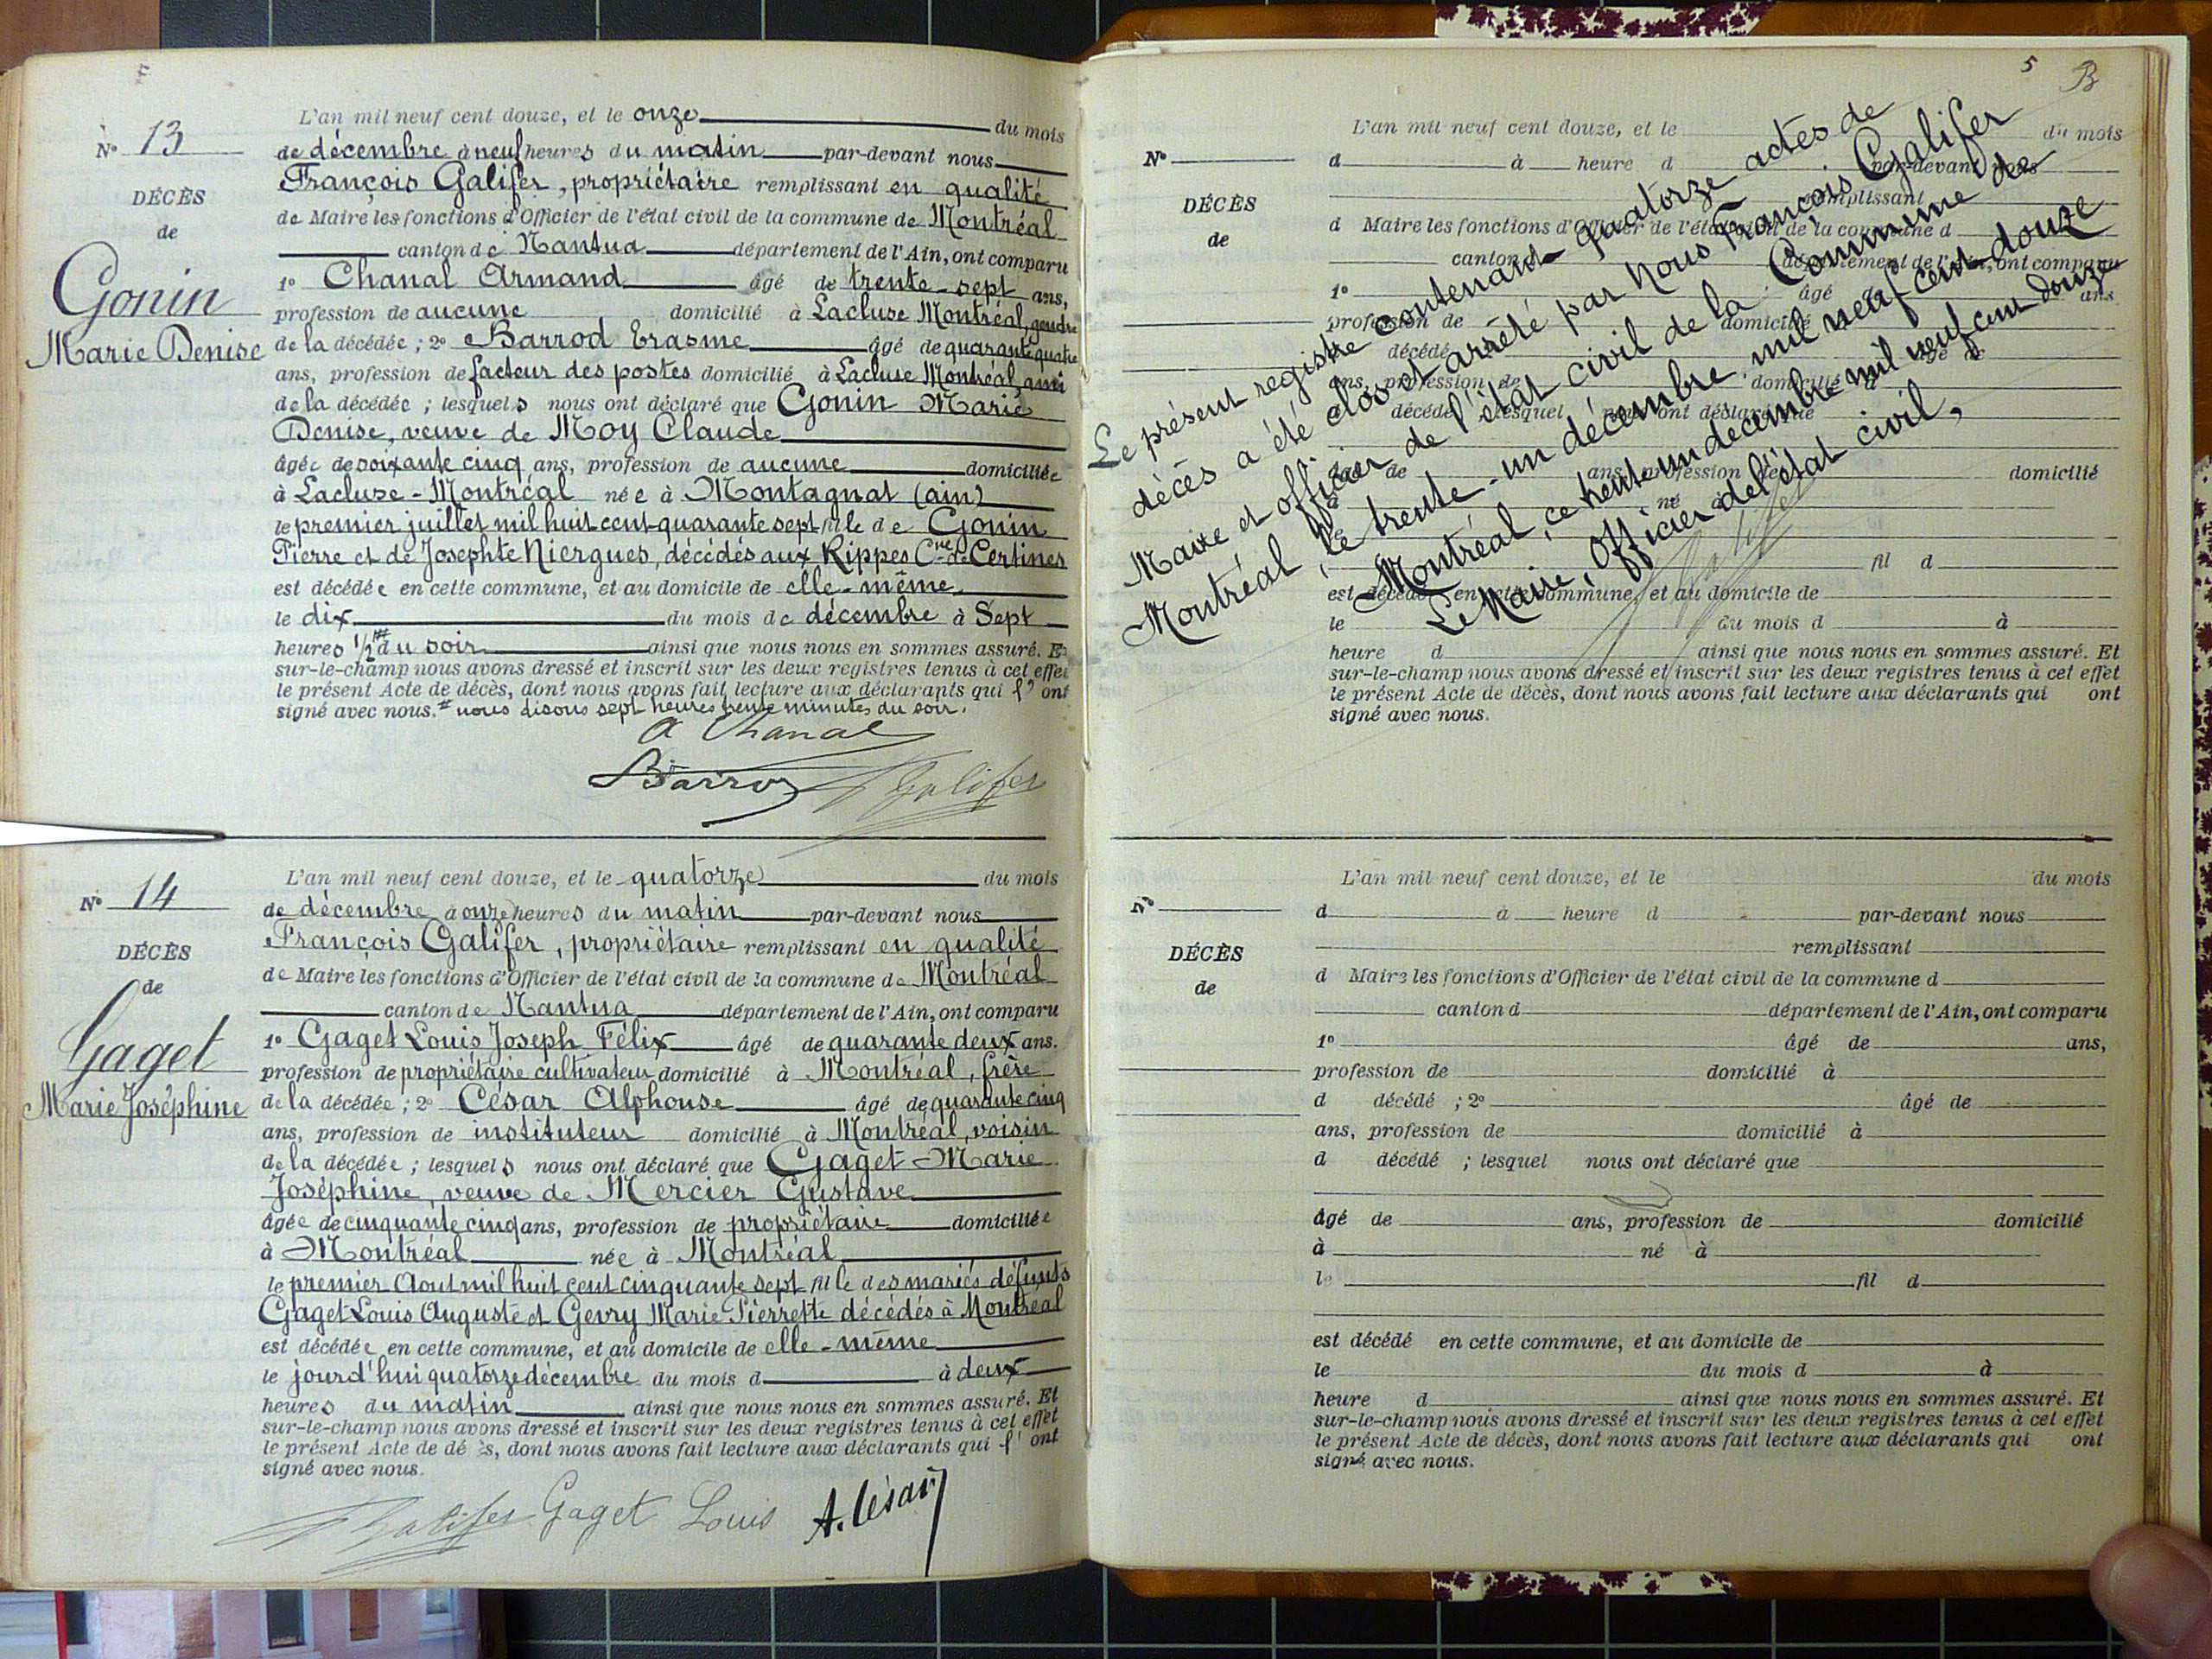 N° 13
DÉCÈS
de
Gonin
Marie Denise
L'an mil neuf cent douze, et le onze du mois
de décembre à neuf heures du matin par-devant nous
François Galifer, propriétaire remplissant en qualité
de Maire les fonctions d'Officier de l'état civil de la commune de Montréal
canton de Nantua département de l'Ain, ont comparu
1° Chanal Armand âgé de trente-sept ans,
profession de aucune domicilié à Lacluse Montréal, gendre
de la décédée ; 2° Barrod Erasme âgé de quarante quatre
ans, profession de facteur des postes domicilié à Lacluse Montréal, ami
de la décédée ; lesquels nous ont déclaré que Gonin Marie
Denise, veuve de Moy Claude
âgée de soixante cinq ans, profession de aucune domiciliée
à Lacluse-Montréal née à Montagnat (ain)
le premier juillet mil huit cent quarante sept fille de Gonin
Pierre et de Josephte Niergues, décédés aux Rippes Cne de Certines
est décédée en cette commune, et au domicile de elle-même
le dix du mois de décembre à Sept
heures 1/2 # du soir ainsi que nous nous en sommes assuré. Et
sur-le-champ nous avons dressé et inscrit sur les deux registres tenus à cet effet
le présent Acte de décès, dont nous avons fait lecture aux déclarants qui l'ont
signé avec nous. # nous disons sept heures trente minutes du soir.
A Chanal
Barrod Galifer
N° 14
DÉCÈS
de
Gaget
Marie Joséphine
L'an mil neuf cent douze, et le quatorze du mois
de décembre à onze heures du matin par-devant nous
François Galifer, propriétaire remplissant en qualité
de Maire les fonctions d'Officier de l'état civil de la commune de Montréal
canton de Nantua département de l'Ain, ont comparu
1° Gaget Louis Joseph Félix âgé de quarante deux ans.
profession de propriétaire cultivateur domicilié à Montréal, frère
de la décédée ; 2° César Alphonse âgé de quarante cinq
ans, profession de instituteur domicilié à Montréal, voisin
de la décédée ; lesquels nous ont déclaré que Gaget Marie
Joséphine, veuve de Mercier Gustave
âgée de cinquante cinq ans, profession de propriétaire domiciliée
à Montréal née à Montréal
le premier Aout mil huit cent cinquante sept fille des mariés défunts
Gaget Louis Auguste et Gevry Marie Pierrette décédés à Montréal
est décédée en cette commune, et au domicile de elle-même
le jourd'hui quatorze décembre du mois d à deux
heures du matin ainsi que nous nous en sommes assuré. Et
sur-le-champ nous avons dressé et inscrit sur les deux registres tenus à cet effet
le présent Acte de décès, dont nous avons fait lecture aux déclarants qui l'ont
signé avec nous.
Galifer Gaget Louis A. César
5 B
N°
DÉCÈS
de
L'an mil neuf cent douze, et le du mois
d à heure d par-devant nous
remplissant
d Maire les fonctions d'Officier de l'état civil de la commune d
canton d département de l'Ain, ont comparu
1° âgé de ans
profession de domicilié à
d décédé ; 2° âgé de
ans, profession de domicilié à
d décédé ; lesquel nous ont déclaré que
âgé de ans, profession de domicilié
à né à
le fil d
est décédé en cette commune, et au domicile de
le du mois d à
heure d ainsi que nous nous en sommes assuré. Et
sur-le-champ nous avons dressé et inscrit sur les deux registres tenus à cet effet
le présent Acte de décès, dont nous avons fait lecture aux déclarants qui ont
signé avec nous.
Le présent registre contenant quatorze actes de
décès a été clos et arrêté par nous François Galifer
Maire et officier de l'état civil de la Commune de
Montréal, le trente-un décembre mil neuf cent douze
Montréal, ce trente un décembre mil neuf cent douze
Le Maire, Officier de l'état civil,
Galifer
N°
DÉCÈS
de
L'an mil neuf cent douze, et le du mois
d à heure d par-devant nous
remplissant
d Maire les fonctions d'Officier de l'état civil de la commune d
canton d département de l'Ain, ont comparu
1° âgé de ans,
profession de domicilié à
d décédé ; 2° âgé de
ans, profession de domicilié à
d décédé ; lesquel nous ont déclaré que
âgé de ans, profession de domicilié
à né à
le fil d
est décédé en cette commune, et au domicile de
le du mois d à
heure d ainsi que nous nous en sommes assuré. Et
sur-le-champ nous avons dressé et inscrit sur les deux registres tenus à cet effet
le présent Acte de décès, dont nous avons fait lecture aux déclarants qui ont
signé avec nous.